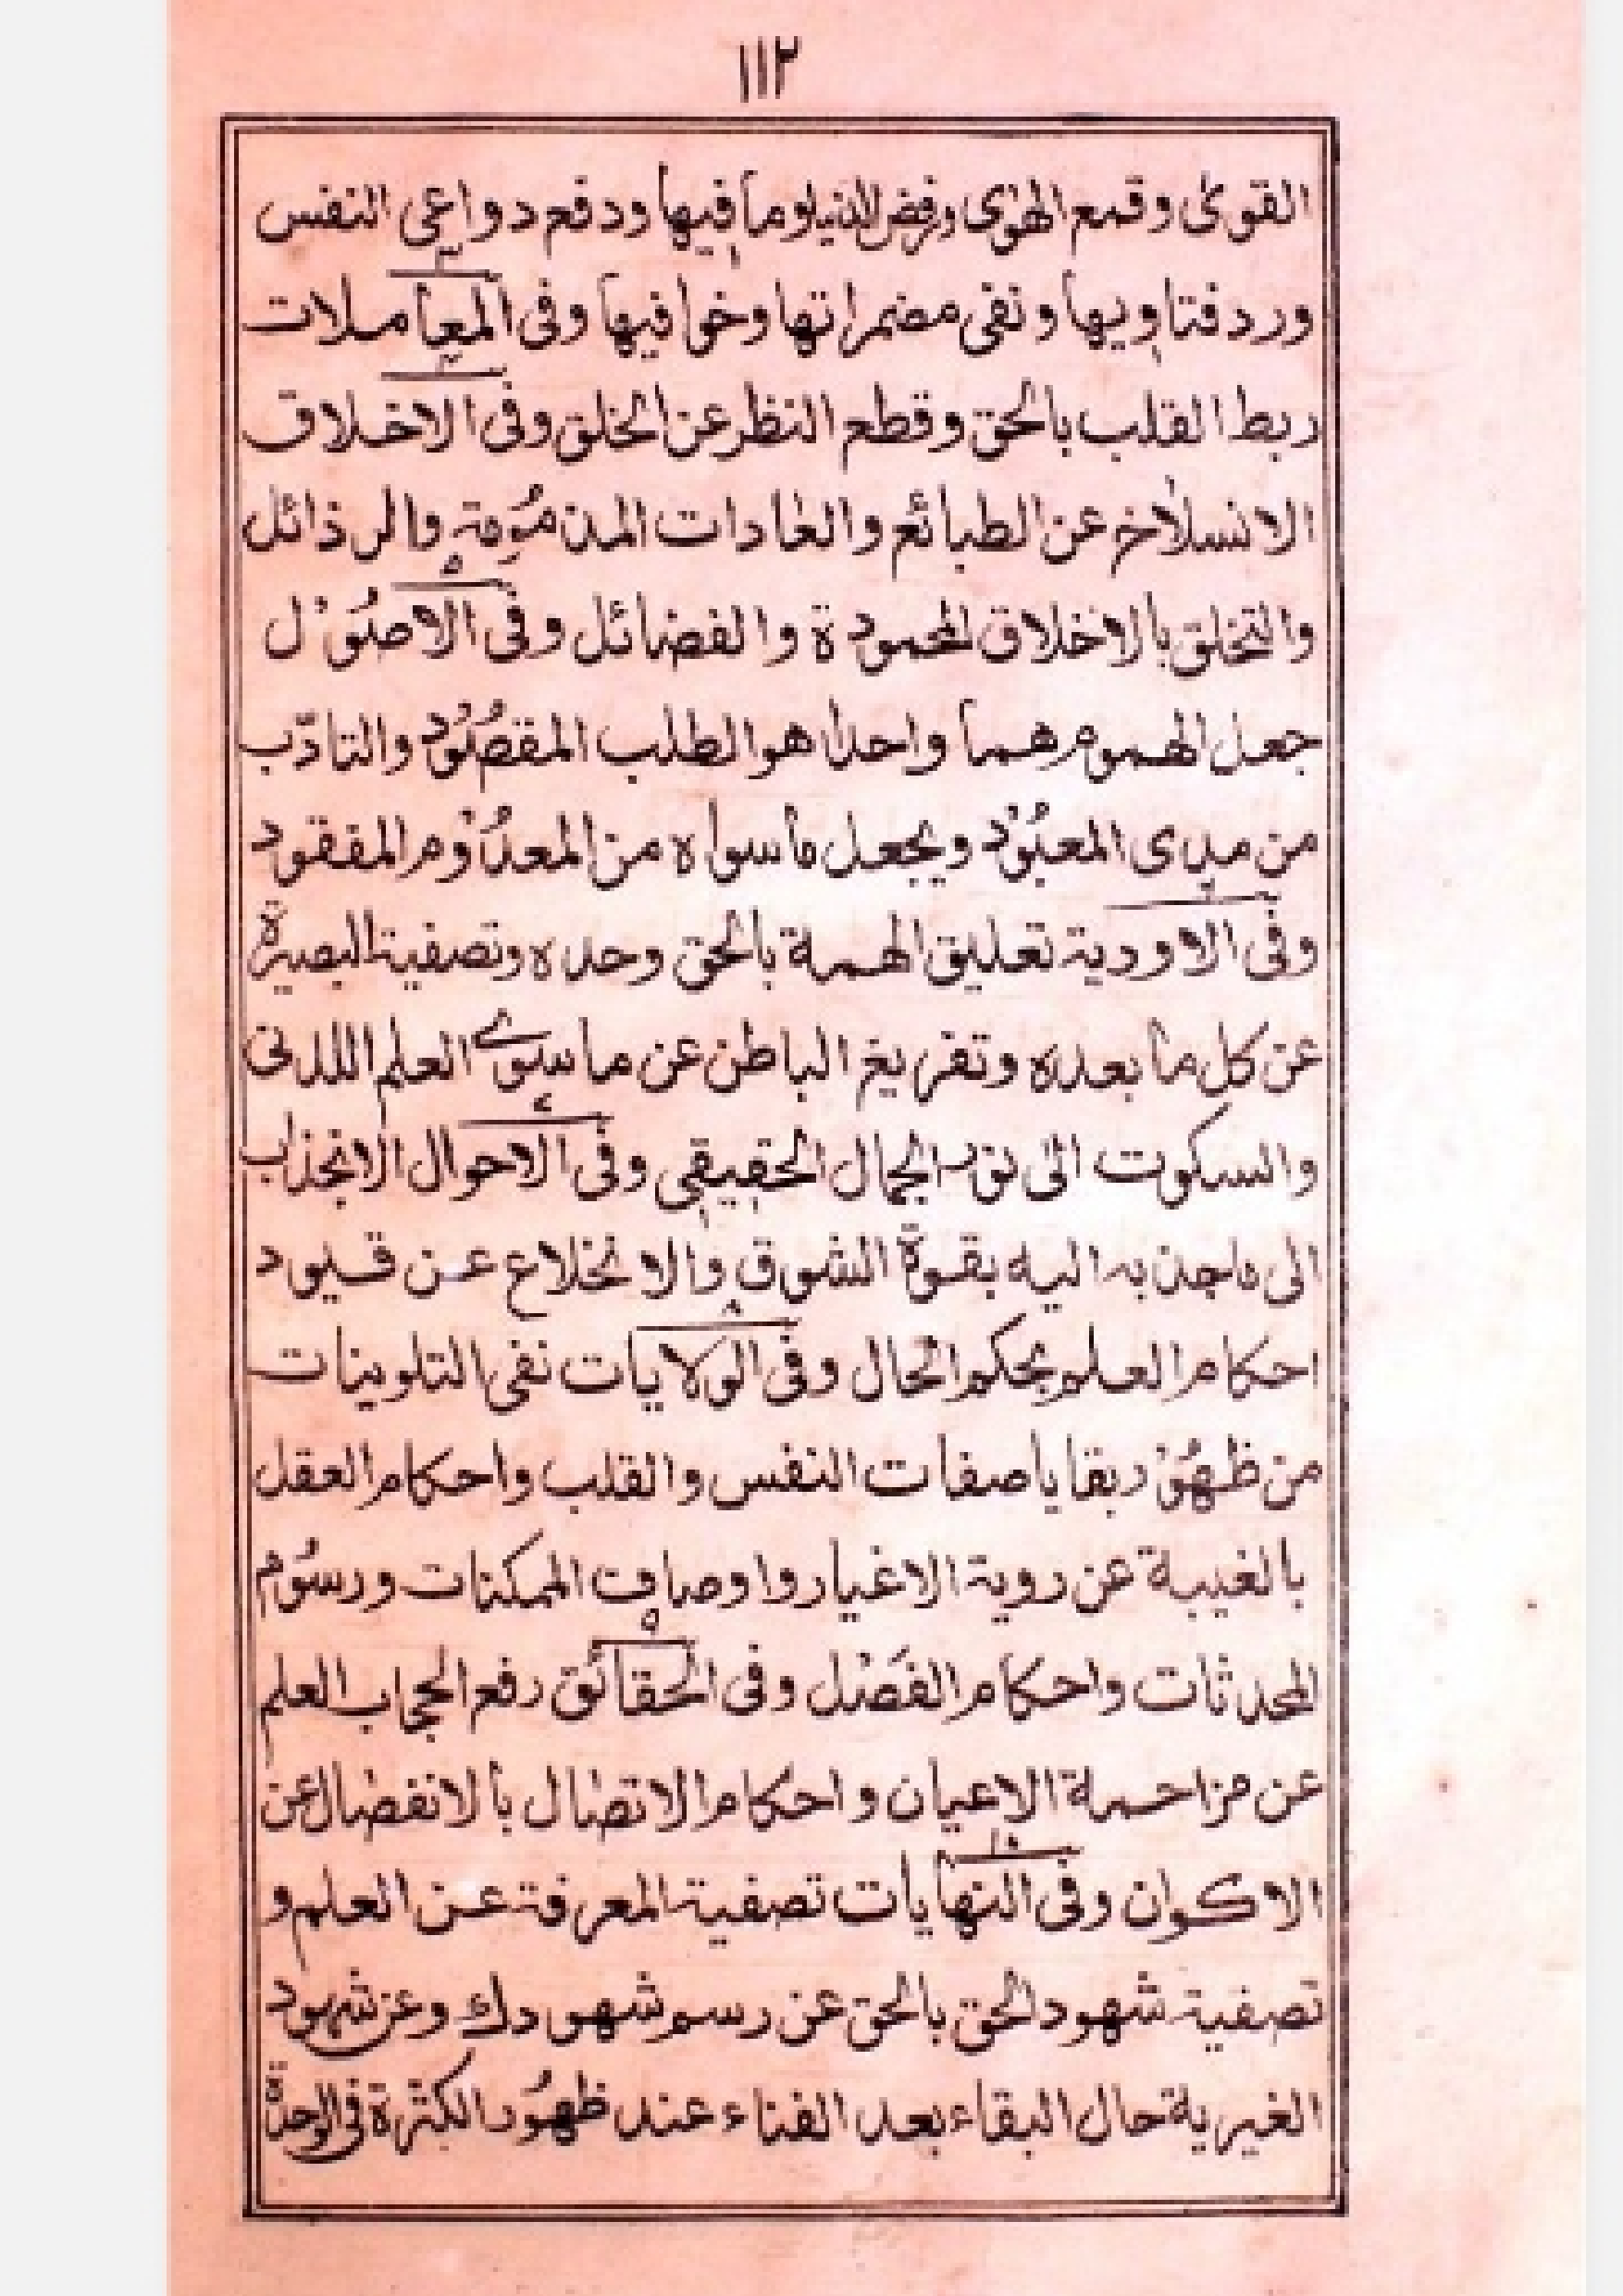 ١١٢
القوى وقمع الهوى ورفض الدنيا وما فيها ودفع دواعى النفس
ورد فتاويها ونفى مضمراتها وخوافيها وفى المعاملات
٣
ربط القلب بالحق وقطع النظر عن الخلق وفى الاخلاق
٤
الانسلاخ عن الطبائع والعادات المذمومة والرذائل
والتخلق بالاخلاق المحمودة والفضائل وفى الاصول
٥
جعل الهموم هما واحدا هو الطلب المقصود والتادّب
من مدى المعبود ويجعل ماسواه من المعدوم المفقود
وفى الاودية تعليق الهمة بالحق وحده وتصفية البصيرة
٦
عن كل ما بعده وتفريغ الباطن عن ماسوے العلم اللدنى
والسكوت الى نور الجمال الحقيقى وفى الاحوال الانجذاب
٧
الى ماجذبه اليه بقوة الشوق والانخلاع عن قيود
احكام العلم بحكم الحال وفى الولايات نفى التلوينات
٨
من ظهور بقايا صفات النفس والقلب واحكام العقل
بالغيبة عن روية الاغيار واوصاف الممكنات ورسوم
المحدثات واحكام الفَصْل وفى الحقائق رفع الحجاب العلم
٩
عن مزاحمة الاعيان واحكام الاتصال بالانفصال عن
الاكوان وفى النهايات تصفية المعرفة عن العلم و
١٠
تصفية شهود الحق بالحق عن رسم شهودك وعن شهود
الغيرية حال البقاء بعد الفناء عند ظهور الكثرة فى الوحدة